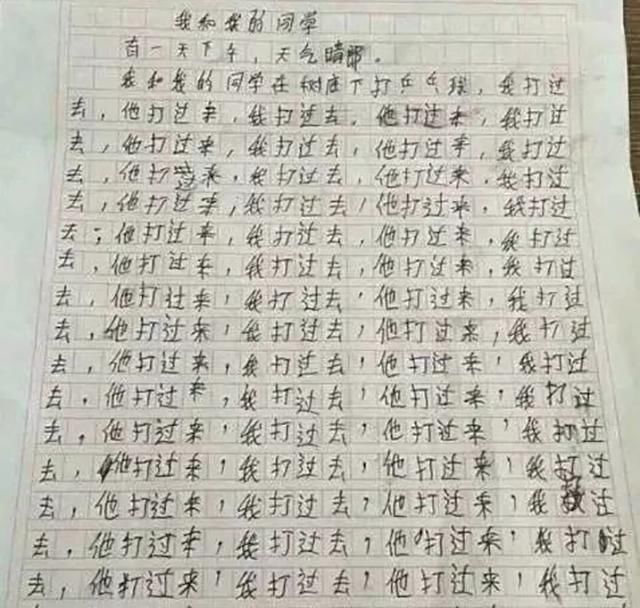 我和我的同学
有一天下午，天气晴朗。
我和我的同学在树底下打乒乓球，我打过
去，他打过来，我打过去，他打过来，我打过
去，他打过来，我打过去，他打过来，我打过
去，他打过来，我打过去，他打过来，我打过
去，他打过来，我打过去，他打过来，我打过
去，他打过来，我打过去，他打过来，我打过
去，他打过来，我打过去，他打过来，我打过
去，他打过来，我打过去，他打过来，我打过
去，他打过来，我打过去，他打过来，我打过
去，他打过来，我打过去，他打过来，我打过
去，他打过来，我打过去，他打过来，我打过
去，他打过来，我打过去，他打过来，我打过
去，他打过来，我打过去，他打过来，我打过
去，他打过来，我打过去，他打过来，我过
去，他打过来，我打过去，他打过来，我打过
去，他打过来，我打过去，他打过来，我打过